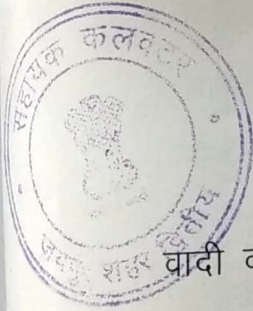 सहायक कलक्टर
जयपुर शहर द्वितीय
वादी